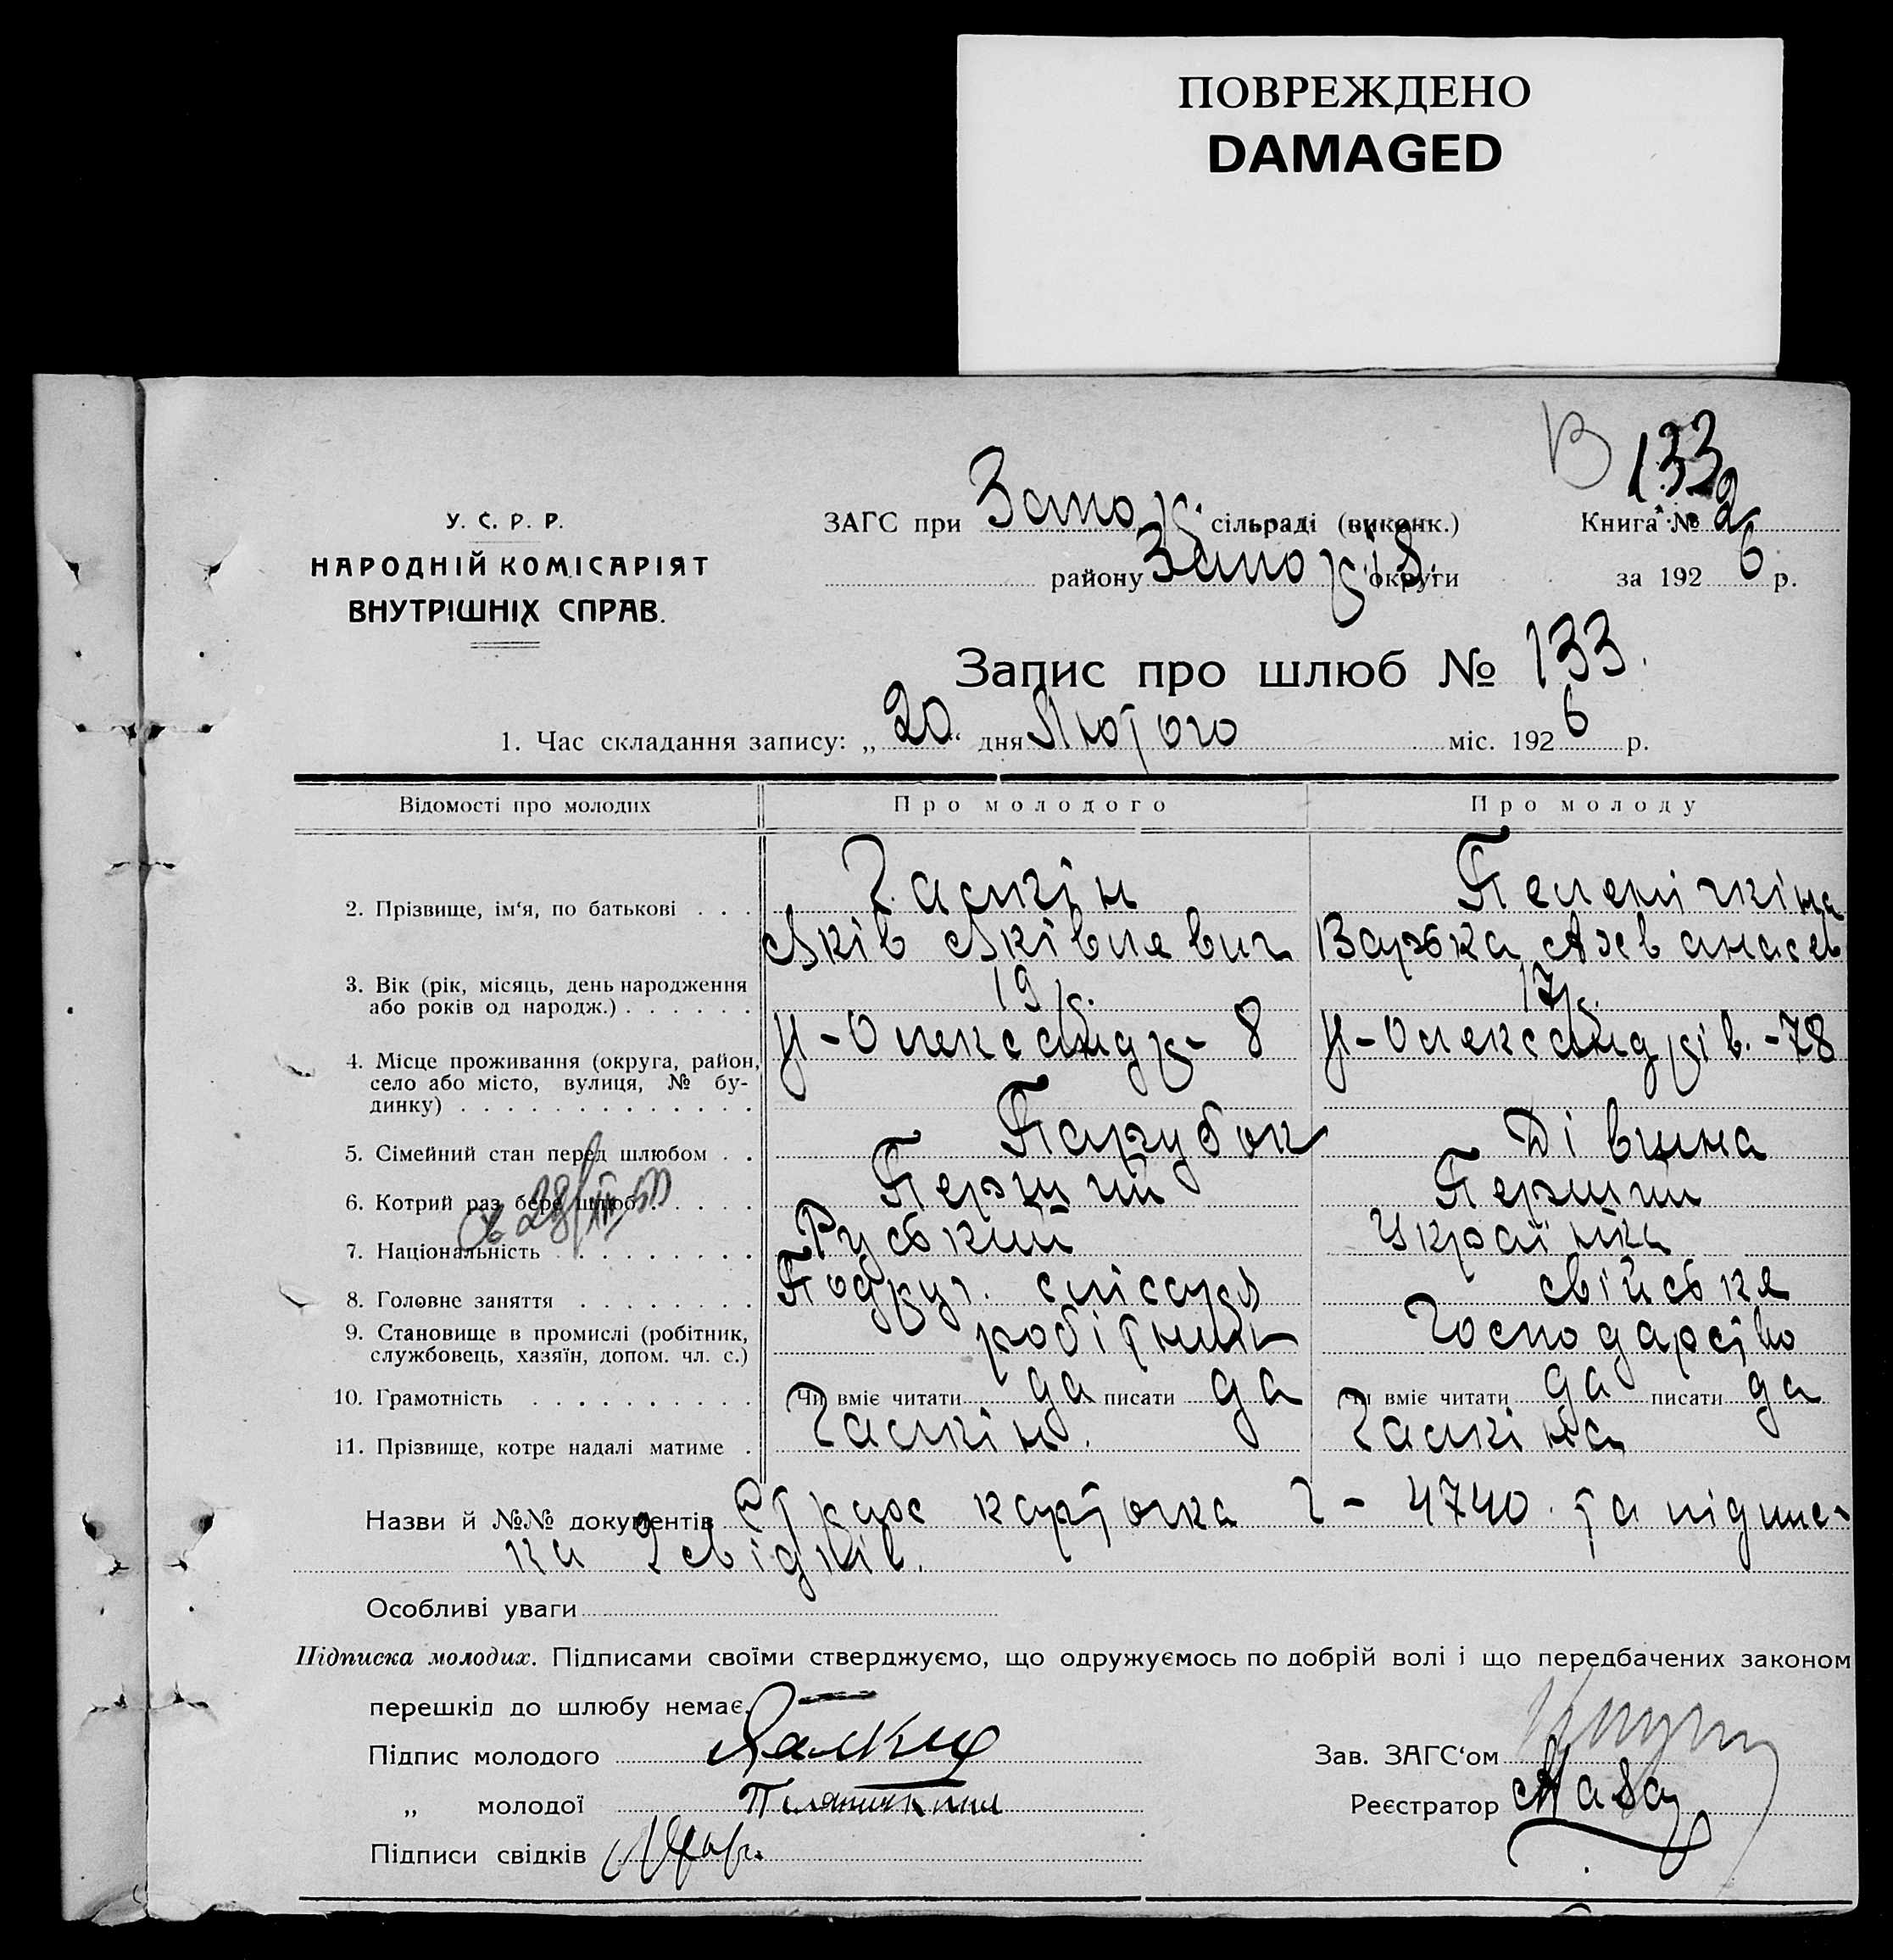 ПОВРЕЖДЕНО
DAMAGED
В 133
У. С. Р. Р.
НАРОДНІЙ КОМІСАРІЯТ
ВНУТРІШНІХ СПРАВ.
ЗАГС при Запор. сільраді (виконк.) Книга № 2
району Запоріз. округи за 1926 р.
Запис про шлюб № 133.
1. Час складання запису: „20“ дня Лютого міс. 1926 р.
Відомості про молодих Про молодого Про молоду
2. Прізвище, ім‘я, по батькові . . . Галкін
Яків Яківлевич Варька
3. Вік (рік, місяць, день народження або років од народж.) . . . . . . 19 р. 17 р.
4. Місце проживання (округа, район, село або місто, вулиця, № будинку) . . . . . . . . . . . . . Н-Олександр- 8 Н-Олександрів. -78
5. Сімейний стан перед шлюбом . . Парубок Дівчина
6. Котрий раз бере шлюб . . . . . Перший Перший
7. Національність . . . . . . . . . Руський Українка
8. Головне заняття . . . . . . . . Подруч. слісаря свійське
9. Становище в промислі (робітник, службовець, хазяїн, допом. чл. с.) робітник Господарство
10. Грамотність . . . . . . . . . . Чи вміє читати да писати да Чи вміє читати да писати да
11. Прізвище, котре надалі матиме . Галкін. Галкіна
Назви й №№ документів Страх карточка Г - 4740 та підпис-
ка 2 свідків.
Особливі уваги
Підписка молодих. Підписами своїми стверджуємо, що одружуємось по добрій волі і що передбачених законом
перешкід до шлюбу немає.
Підпис молодого Галкин Зав. ЗАГС‘ом
„ молодої Реєстратор
Підписи свідків